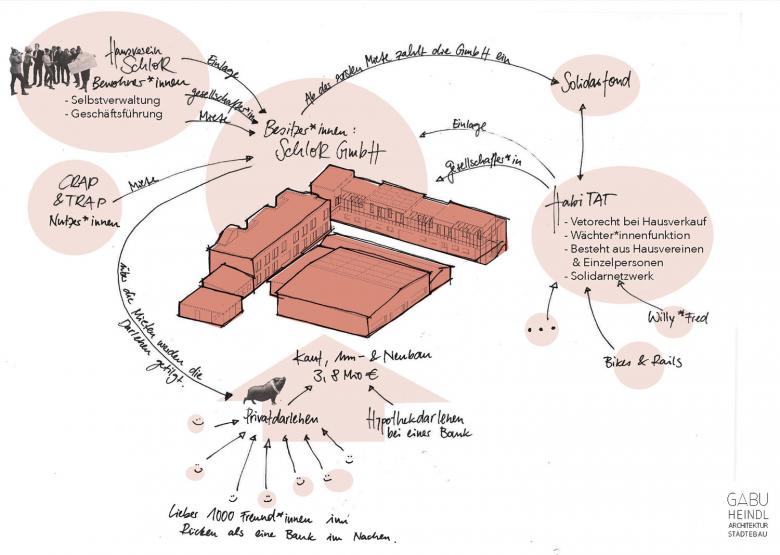 Hausverein
SchloR
Bewohner*innen
- Selbstverwaltung
- Geschäftsführung
Einlage
gesellschafter*in
Miete
Ab der ersten Miete zahlt die GmbH ein
Solidarfond
Besitzer*innen:
SchloR GmbH
Einlage
gesellschafter*in
CRAP
& TRAP
Nutzer*innen
Miete
HabiTAT
- Vetorecht bei Hausverkauf
- Wächter*innenfunktion
- Besteht aus Hausvereinen
& Einzelpersonen
- Solidarnetzwerk
Willy*Fred
Bikes & Rails
über die Mieten werden die
Darlehen getilgt.
Kauf, Um- & Neubau
3,8 Mio €
Privatdarlehen
Hypothekdarlehen
bei einer Bank
Lieber 1000 Freund*innen im
Rücken als eine Bank im Nacken.
GABU
HEINDL
ARCHITEKTUR
STADTEBAU